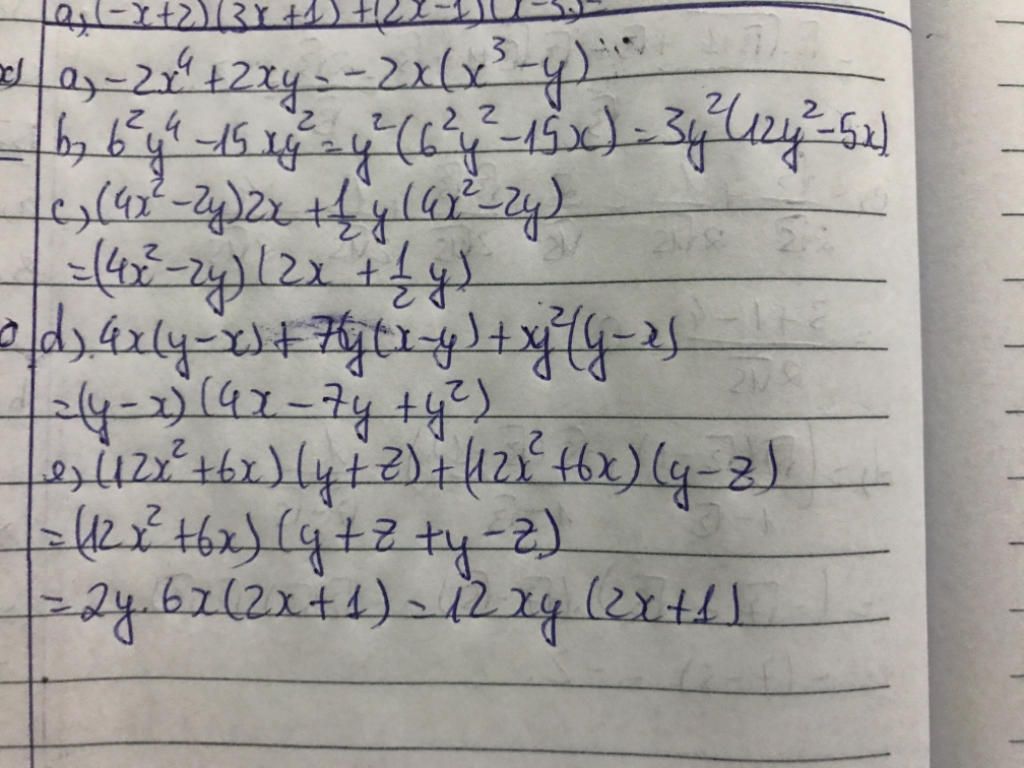 a, (-x+2)(3x+1)+(2x-1)(x-3)=
a, -2x⁴+2xy=-2x(x³-y)
b, 6²y⁴-15xy²=y²(6²y²-15x)=3y²(12y²-5x)
c, (4x²-2y)2x+1/2y(4x²-2y)
=(4x²-2y)(2x+1/2y)
d, 4x(y-x)+7y(x-y)+xy²(y-x)
=(y-x)(4x-7y+y²)
e, (12x²+6x)(y+z)+(12x²+6x)(y-z)
=(12x²+6x)(y+z+y-z)
=2y.6x(2x+1)=12xy(2x+1)